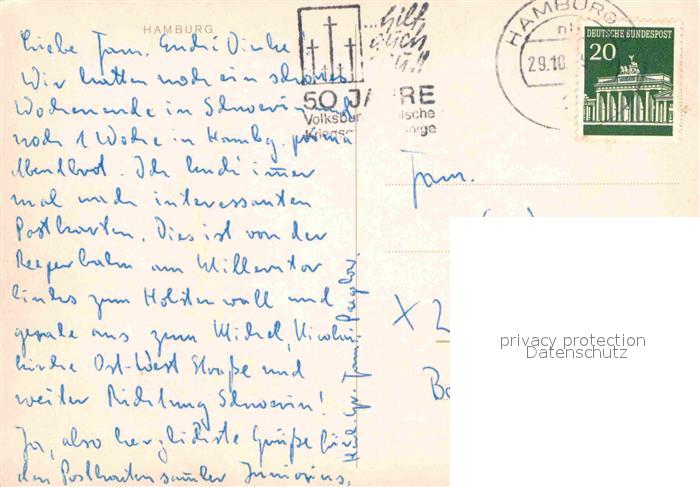 HAMBURG
Liebe Fam.
Wir hatten noch ein schönes
Wochenende in Schwerin und
noch 1 Woche in Hambg. prima
Abendbrot. Ich immer
mal nach interessanten
Postkarten. Dies ist von der
Reeperbahn am Millerntor
links zum Holstenwall und
gerade aus zum Michel, Nicolai
kirche Ost-West Straße und
weiter Richtung Schwerin!
Ja, also herzlichste Grüße für
den Postkartensammler
Herzl. Gr. Fam.
...hilf
auch
Du!!
50 JAHRE
HAMBURG
29.10.
DEUTSCHE BUNDESPOST
20
Fam.
X 2
privacy protection
Datenschutz